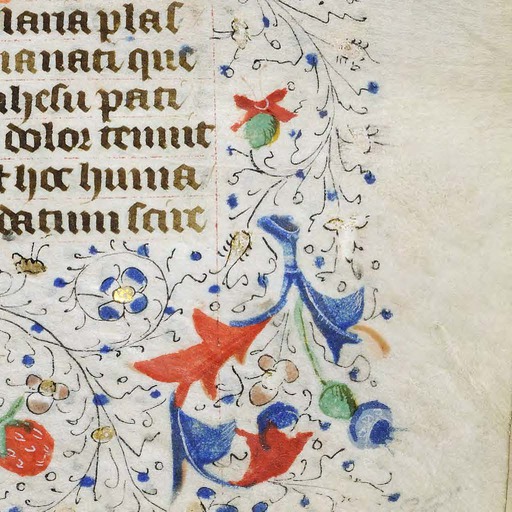 iana plas
nanati que
ihesu pati
dolor tenuit
t hoc huma
datum scire